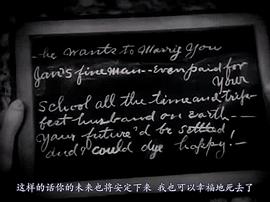 he wants to Marry you
Jan's fine man -- even paid for
Your
school all the time and
best husband on earth --
Your future'd be settled,
and I could dye happy. --
这样的话你的未来也将安定下来 我也可以幸福地死去了